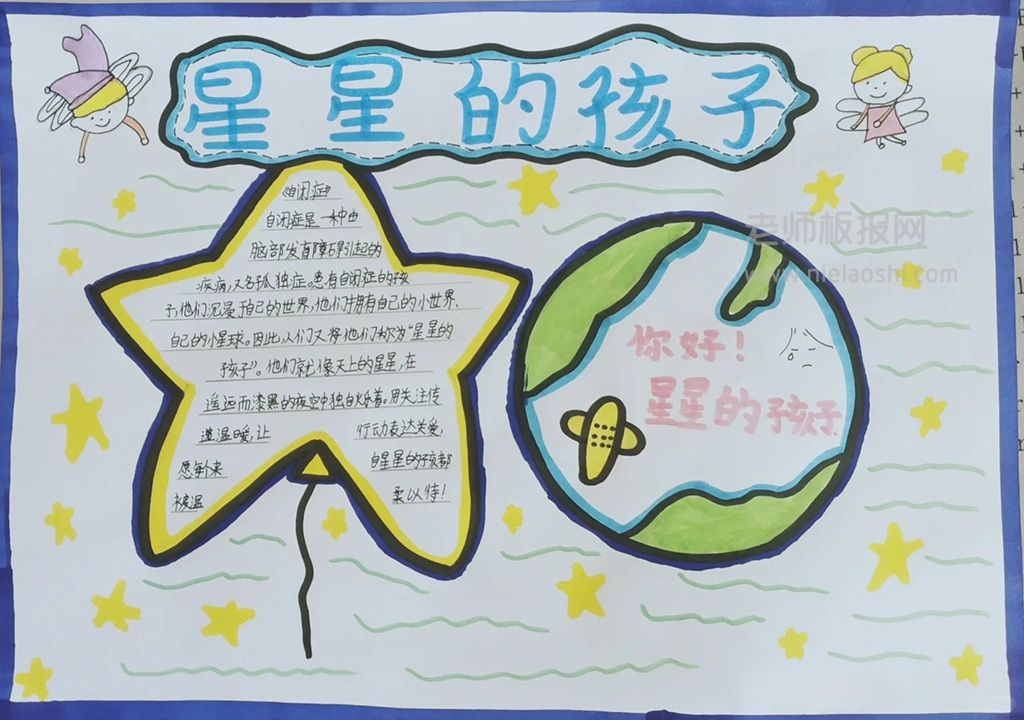 星星的孩子
《自闭症》
自闭症是一种由
脑部发育障碍引起的
疾病,又名孤独症。患有自闭症的孩
子,他们沉浸于自己的世界,他们拥有自己的小世界、
自己的小星球。因此,人们又将他们称为“星星的
孩子”。他们就像天上的星星,在
遥远而漆黑的夜空中独自烁着。用关注传
遞温暖,让 行动表达关爱,
愿每个来 自星星的孩都
被温 柔以待!
你好!
星星的孩子
老师板报网
www.nielaoshi.com